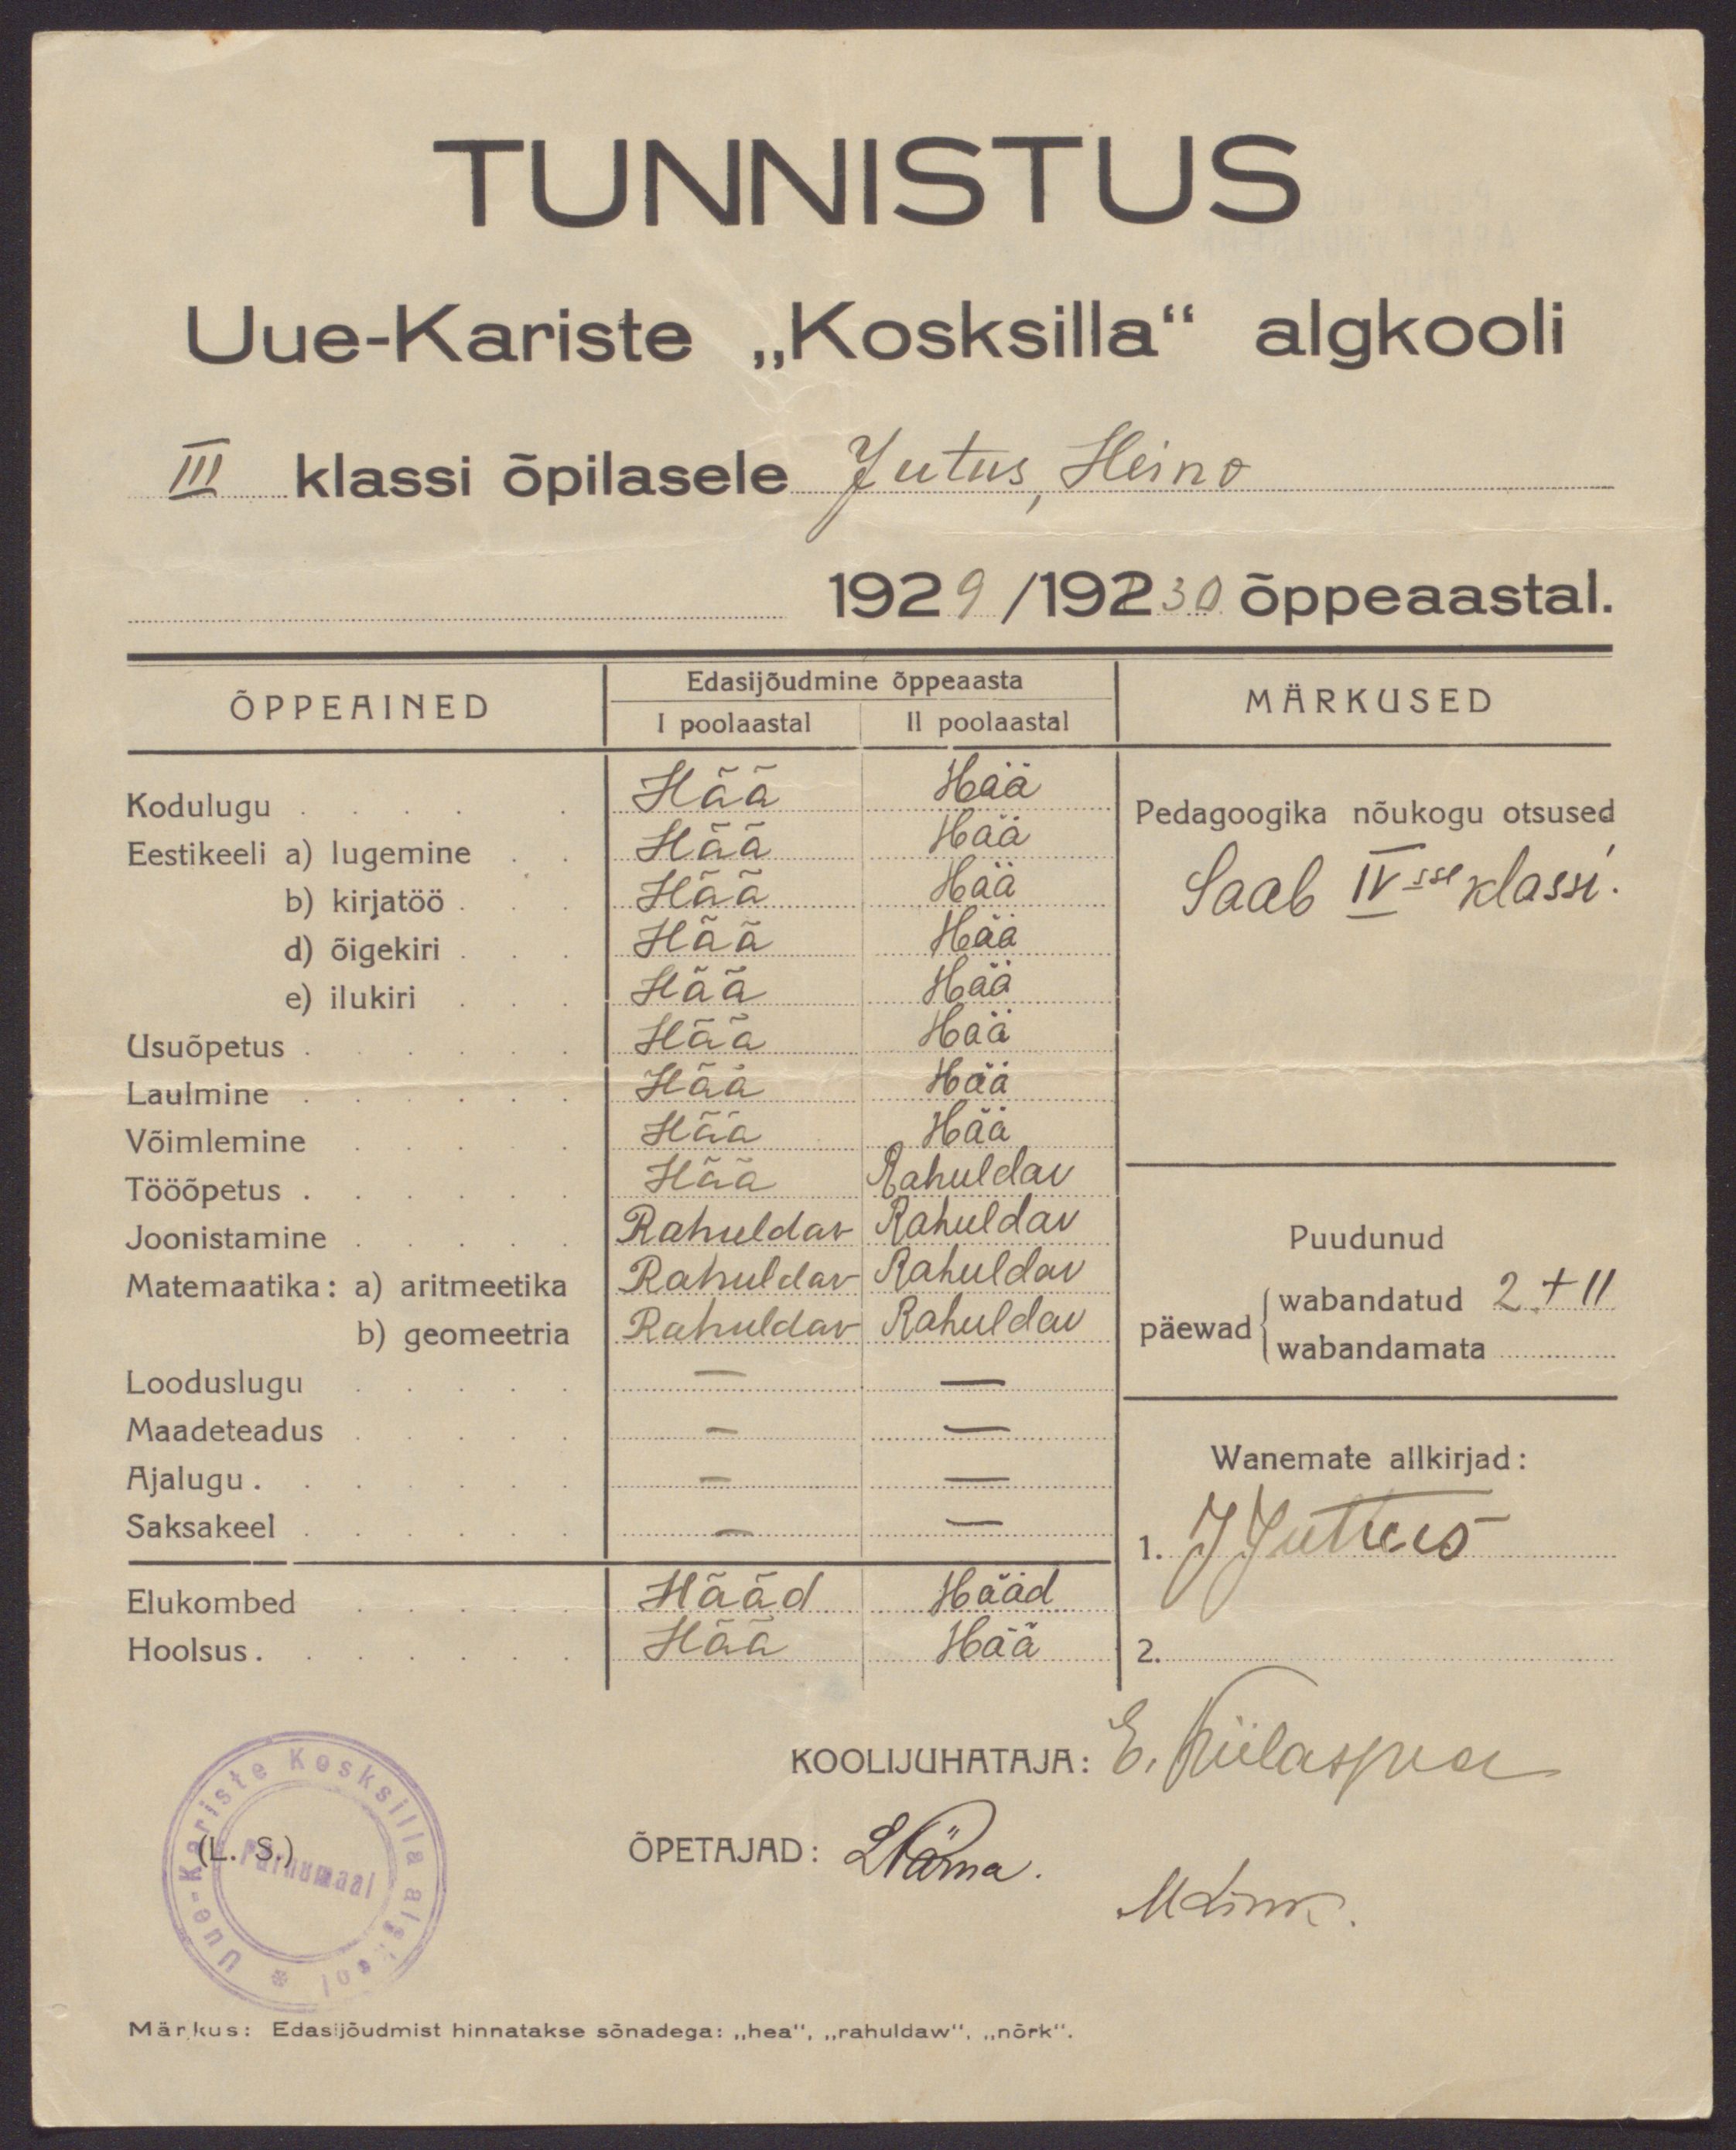 TUNNISTUS
Uue-Kariste „Kosksilla“ algkooli
III klassi õpilasele Jutus, Heino
1929/19230 õppeaastal.
ÕPPEAINED
Edasijõudmine õppeaasta
I poolaastal II poolaastal
MÄRKUSED
Kodulugu Hää Hää
Eestikeeli a) lugemine Hää Hää
b) kirjatöö Hää Hää
d) õigekiri Hää Hää
e) ilukiri Hää Hää
Usuõpetus Hää Hää
Laulmine Hää Hää
Võimlemine Hää Hää
Tööõpetus Hää Rahuldav
Joonistamine Rahuldav Rahuldav
Matemaatika: a) aritmeetika Rahuldav Rahuldav
b) geomeetria Rahuldav Rahuldav
Looduslugu — —
Maadeteadus — —
Ajalugu — —
Saksakeel — —
Elukombed Hääd Hääd
Hoolsus Hää Hää
Pedagoogika nõukogu otsused
Saab IV sse klassi.
Puudunud
päewad wabandatud 2 + 11
wabandamata
Wanemate allkirjad:
1. J Juttus
2.
KOOLIJUHATAJA: E. Piilaspea
ÕPETAJAD:
M Link.
Uue-Kariste Kosksilla algkool
Pärnumaal
(L. S.)
Märkus: Edasijõudmist hinnatakse sõnadega: „hea“, „rahuldaw“, „nõrk“.